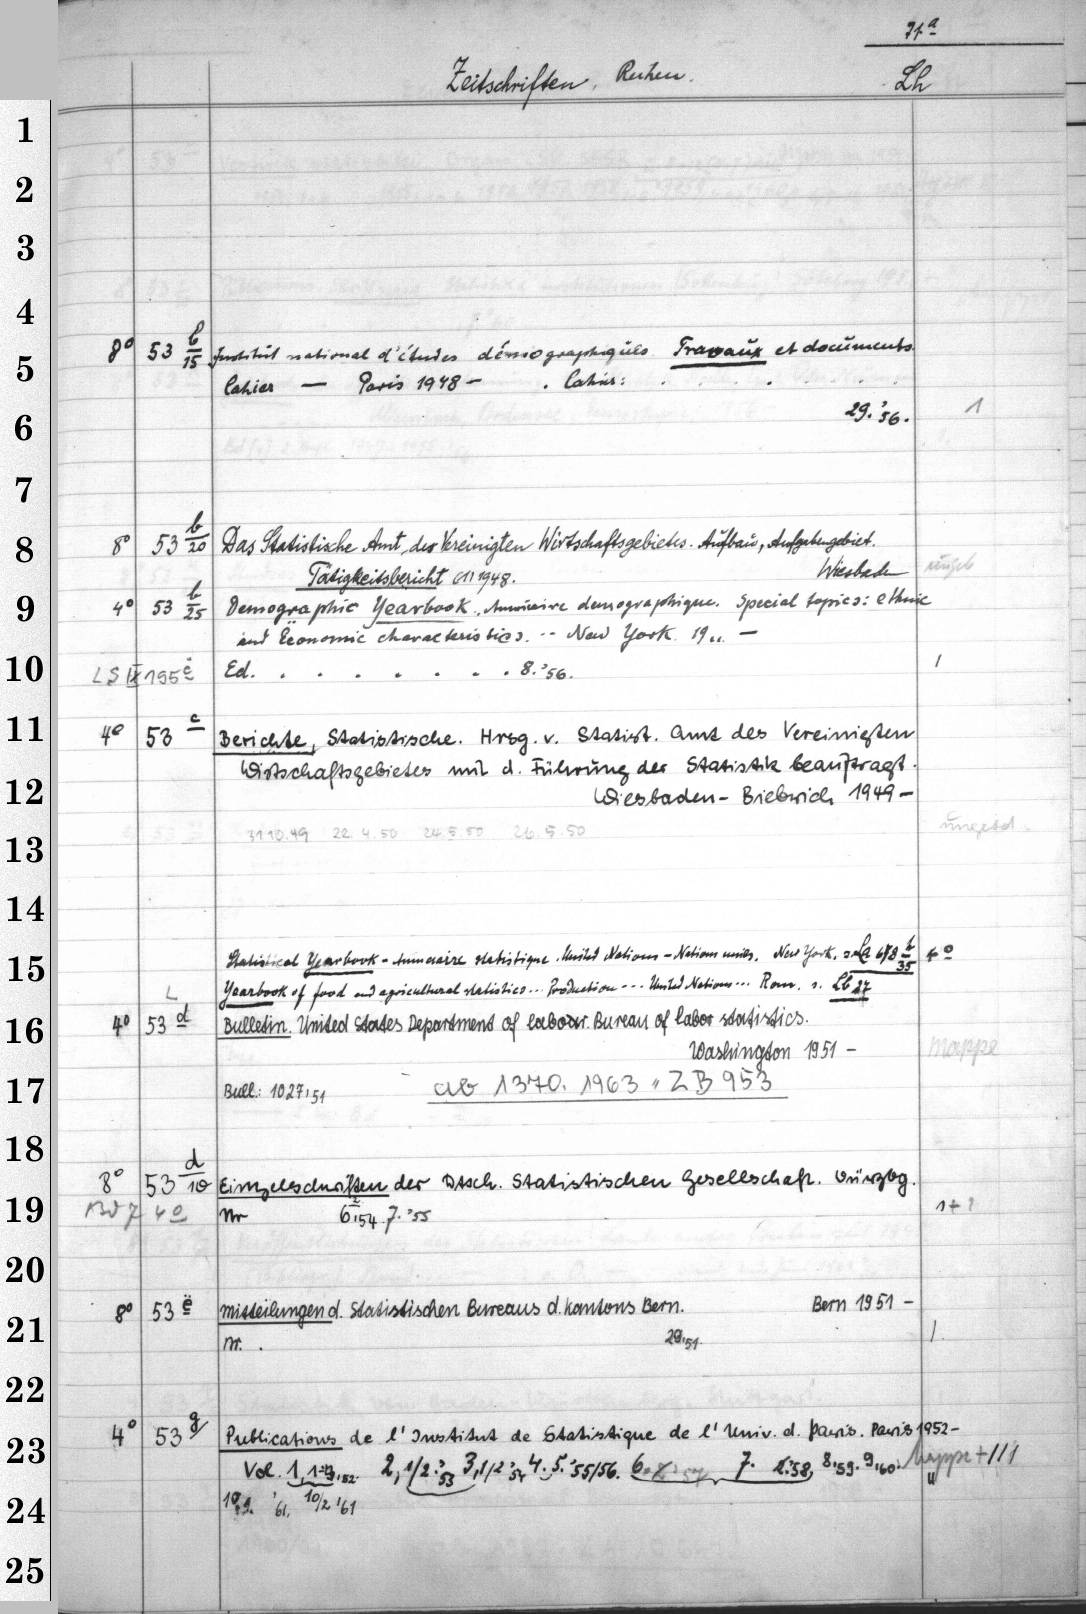 71a
Zeitschriften, Reihen. Lh
1
2
3
4
8° 53 b/15 Institut national d'études démographiques. Travaux et documents.
5
Cahier — Paris 1948 — . Cahier: . . . . .
29.'56. 1
6
7
8° 53 b/20 Das Statistische Amt des Vereinigten Wirtschaftsgebietes. Aufbau, Aufgabengebiet.
8
Tätigkeitsbericht 1948. Wiesbaden ungeb
4° 53 b/25 Demographic Yearbook. Annuaire demographique. Special topics: ethnic
9
and Economic characteristics. -- New York 19.. —
10
LS IX 195 Ed. . . . . . . . 8.'56. 1
11
4° 53 c Berichte, Statistische. Hrsg. v. Statist. Amt des Vereinigten
Wirtschaftsgebietes mit d. Führung der Statistik beauftragt.
12
Wiesbaden-Biebrich 1949 —
31.10.49 22.4.50 24.5.50 26.5.50
13
14
Statistical Yearbook - Annuaire statistique. United Nations - Nations unies. New York. s. La 678 b/35 4°
15
Yearbook of food and agricultural statistics... Production --- United Nations... Rom. s. Lb 27
L
16
4° 53 d Bulletin. United States Department of labour. Bureau of labor statistics.
Washington 1951 — Mappe
17
Bull.: 1027,51 ab 1370. 1963 " ZB 953
18
8° 53 d/10 Einzelschriften der Dtsch. Statistischen Gesellschaft. Würzbg.
19
Nr 6,54. 7.'55
20
8° 53 e Mitteilungen d. Statistischen Bureaus d. Kantons Bern. Bern 1951 —
21
Nr. . 29,51.
22
4° 53 g Publications de l'Institut de Statistique de l'Univ. d. Paris. Paris 1952-
23
Vol. 1, 2, 1/2.'53 3, 1/2'54 4. 5.'55/56. 7. 8,59. 9,60. Mappe + 111
24
'61. 10/2 '61
25